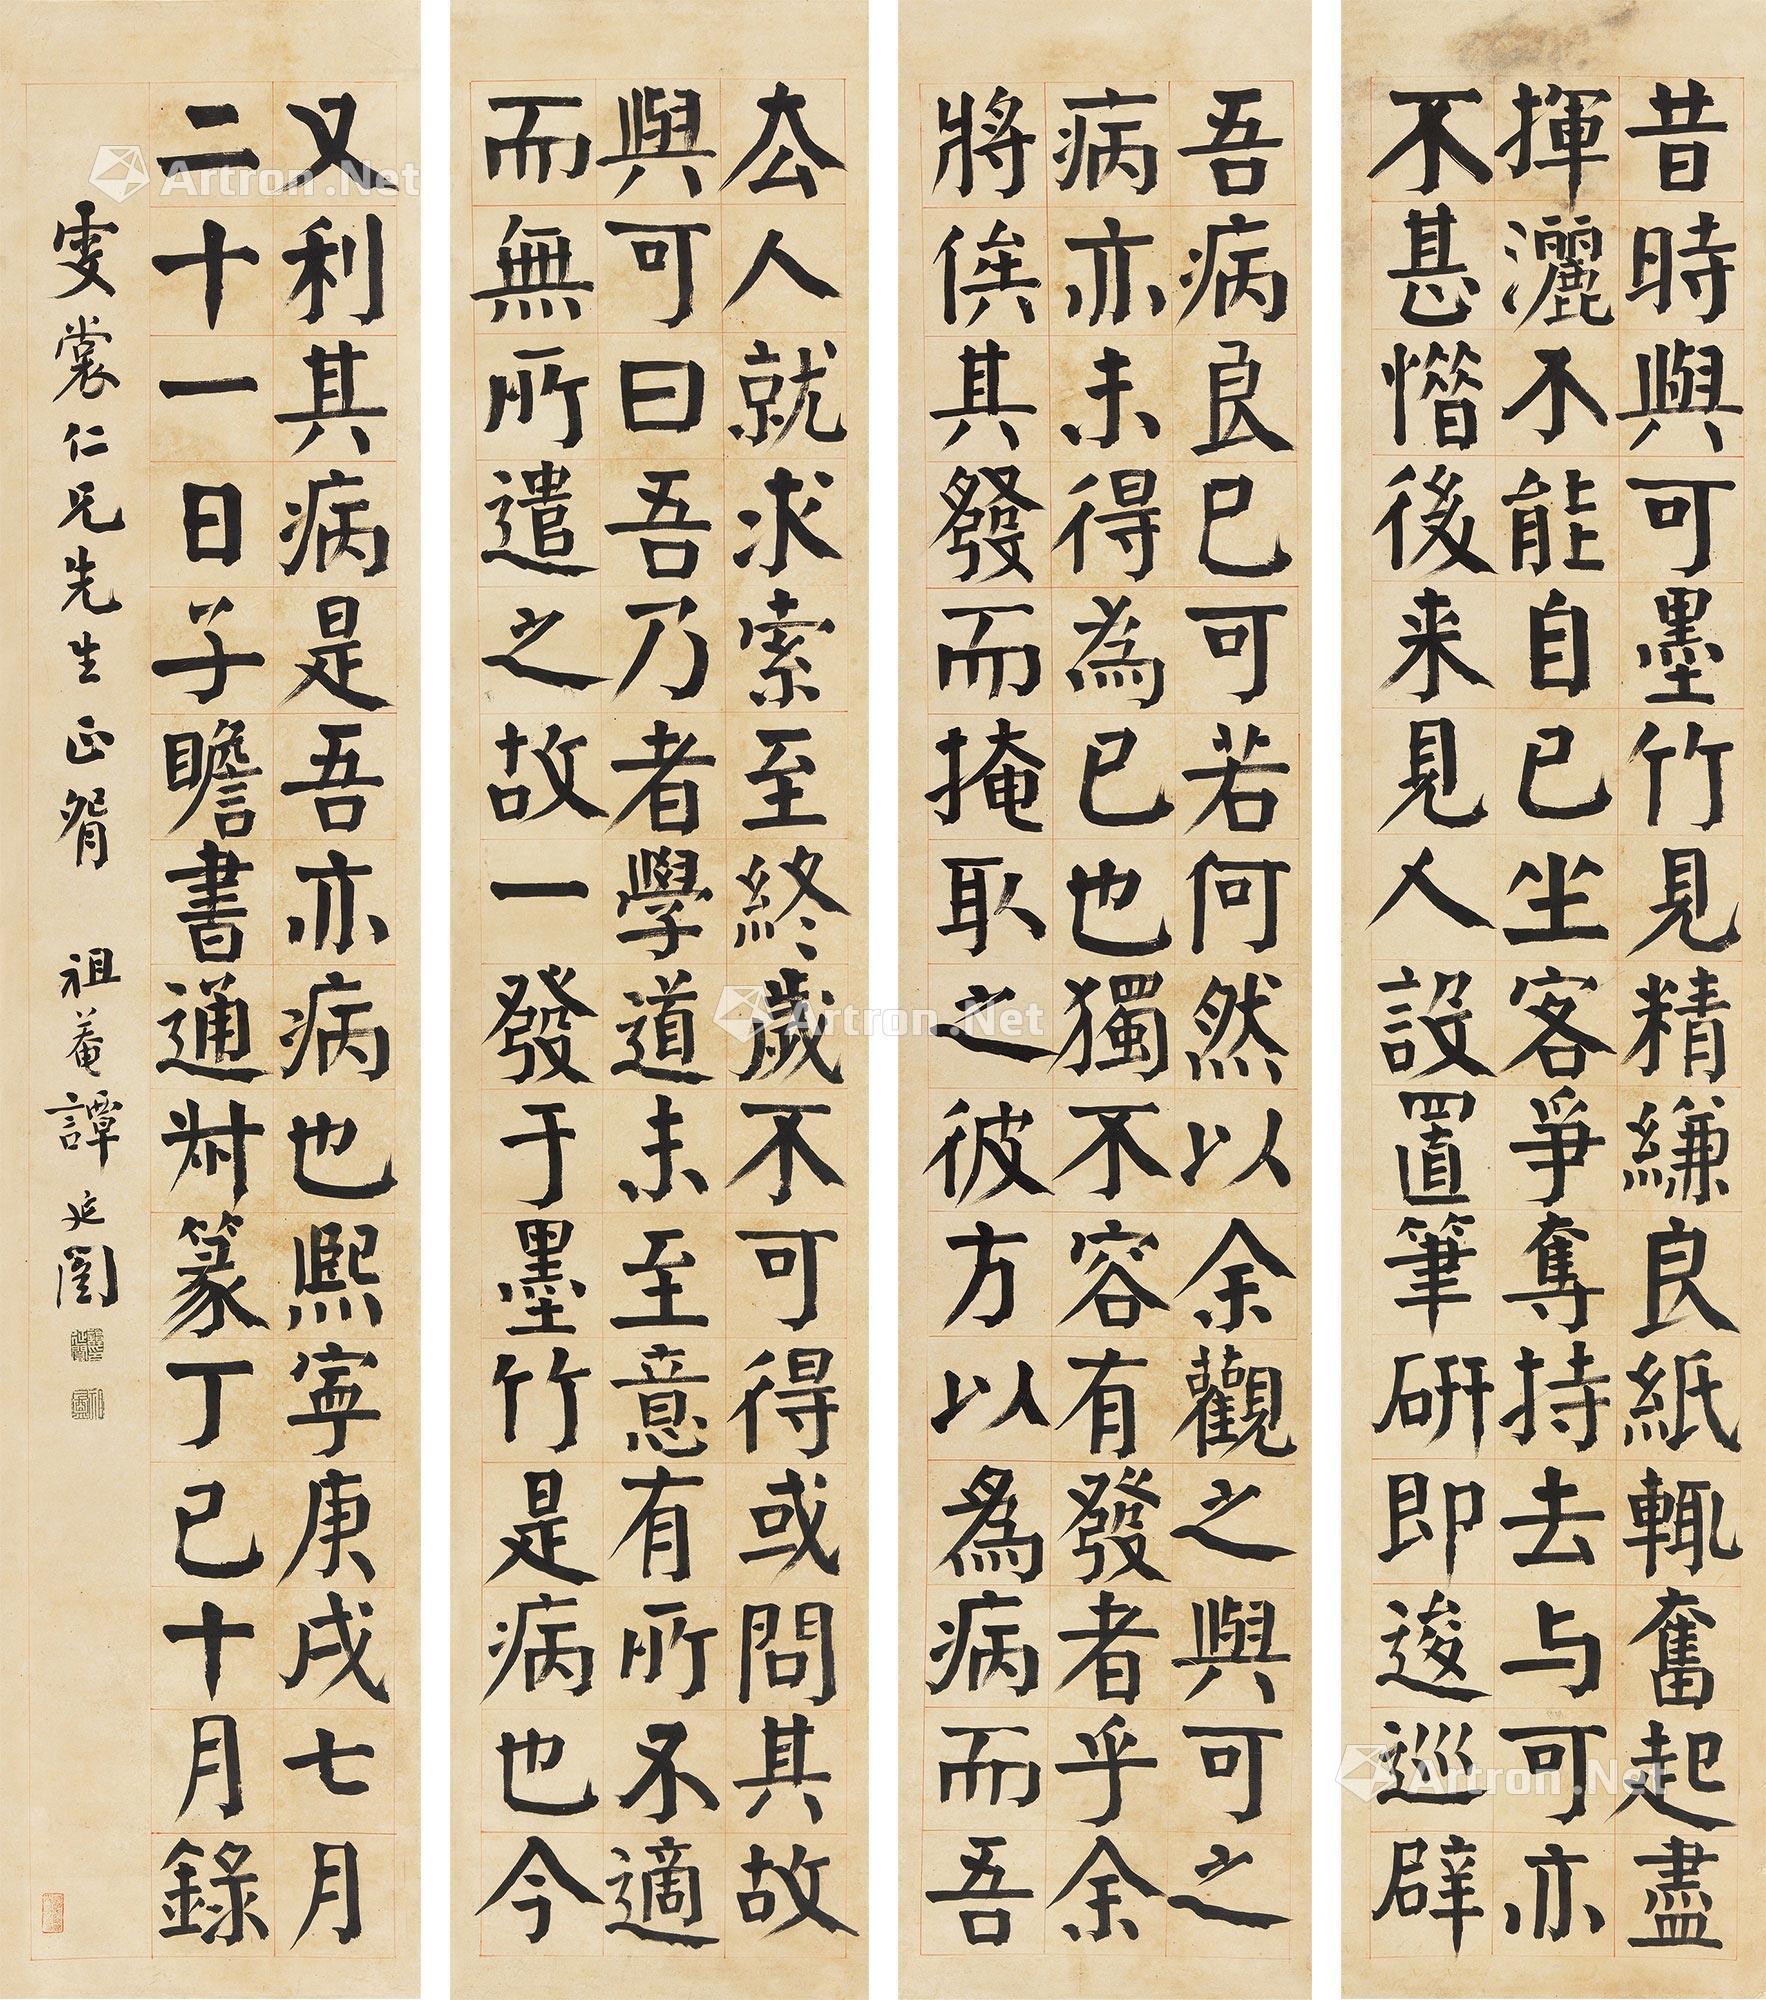 昔時與可墨竹見精縑良紙輒奮起盡
揮灑不能自已坐客爭奪持去与可亦
不甚惜後来見人設置筆研即逡巡辟
吾病良已可若何然以余觀之與可之
病亦未得為已也獨不容有發者乎余
將俟其發而掩取之彼方以為病而吾
去人就求索至終歲不可得或問其故
與可曰吾乃者學道未至意有所不適
而無所遣之故一發于墨竹是病也今
又利其病是吾亦病也熙寧庚戌七月
二十一日子瞻書通尗篆丁巳十月錄
雯裳仁兄先生正腕 祖菴譚延闓
Artron.Net
Artron.Net
Artron.Net